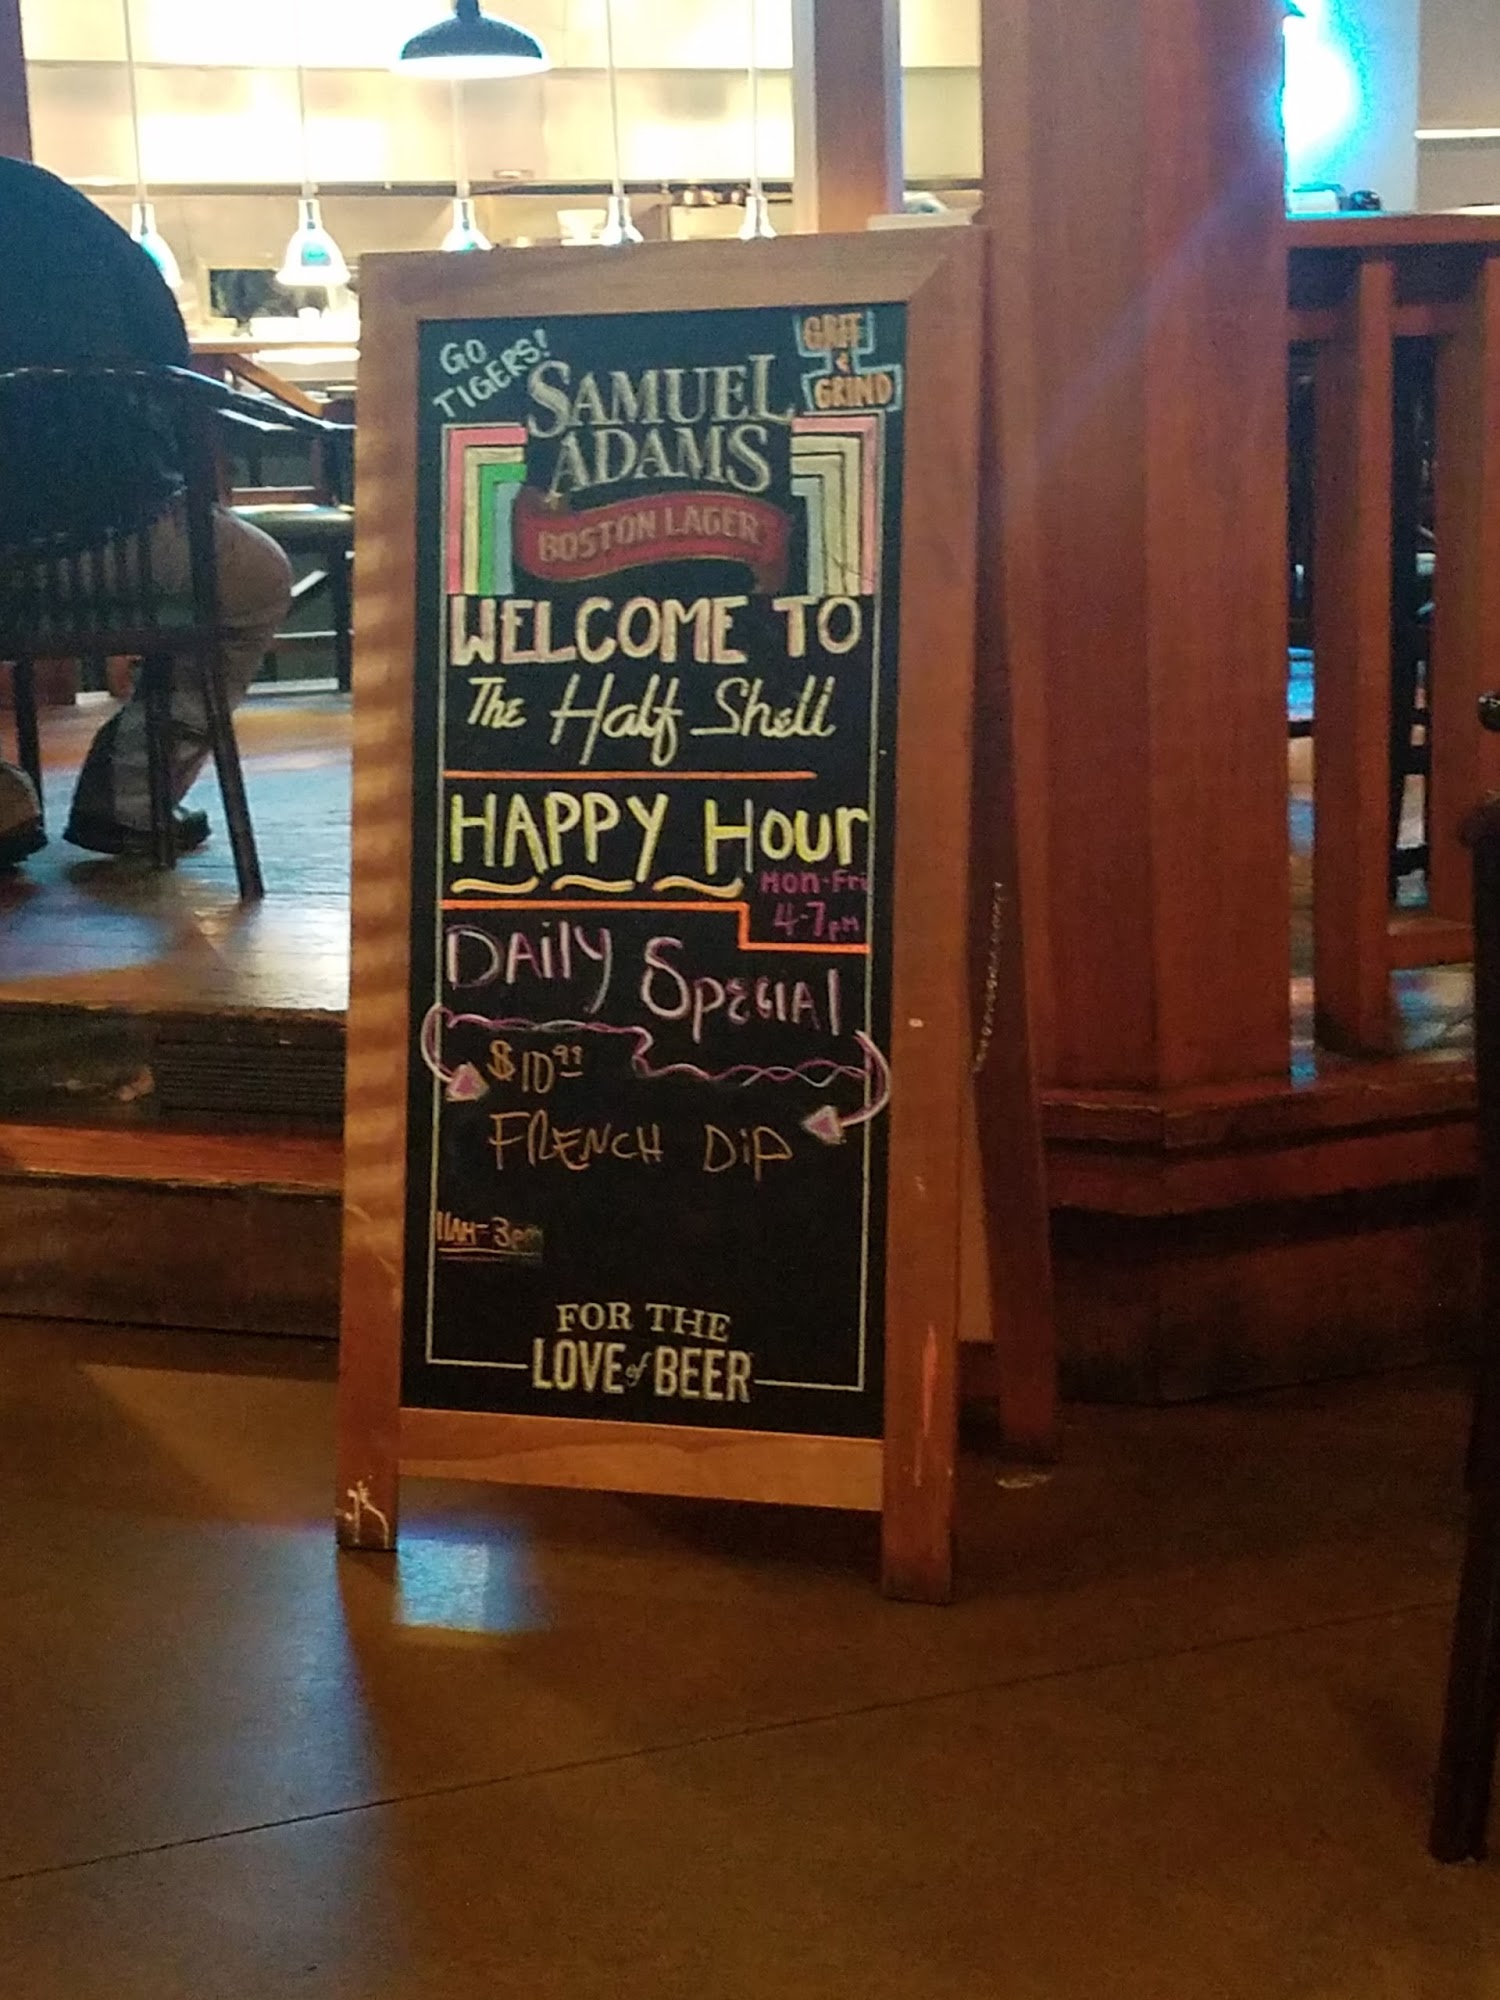 GO
TIGERS!
GRIT
&
GRIND
SAMUEL
ADAMS
BOSTON LAGER
WELCOME TO
The Half Shell
HAPPY HOUR
MON-Fri
4-7pm
DAily Special
$10.99
FRENCH DiP
11AM-3pm
FOR THE
LOVE of BEER